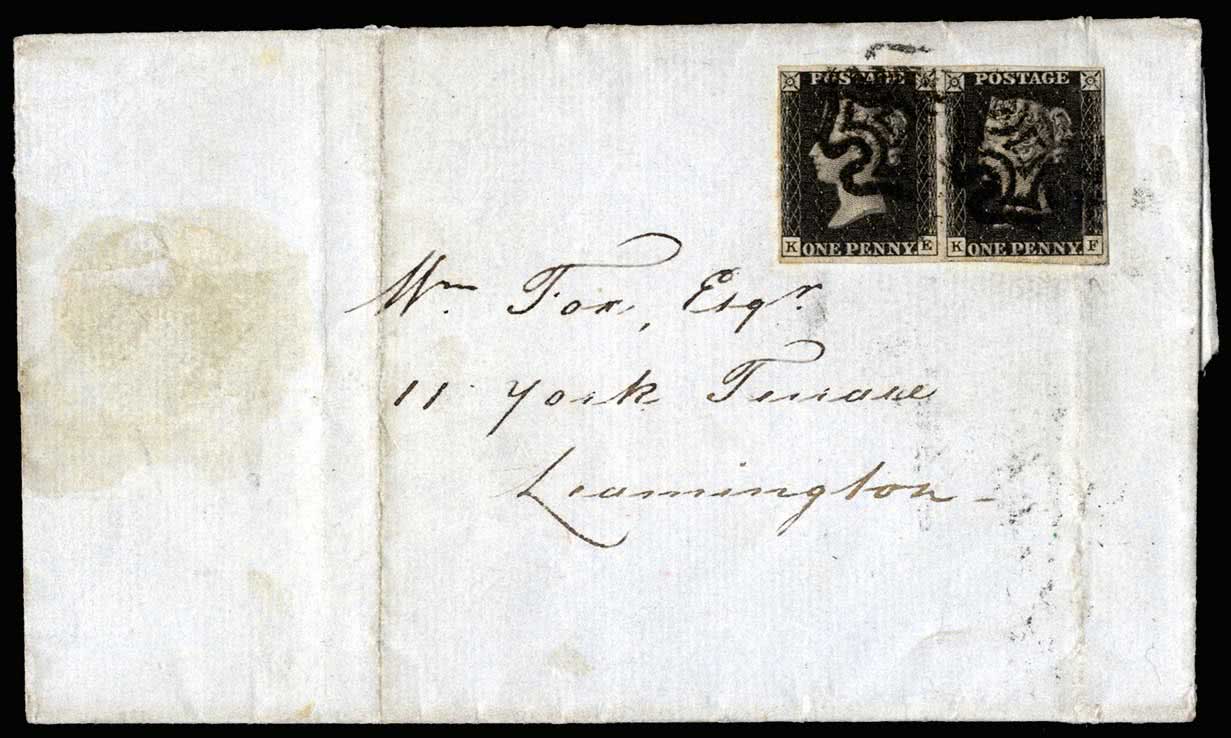 POSTAGE POSTAGE
K ONE PENNY. E K ONE PENNY. F
Wm Fox, Esqr
11 York Terrace
Leamington -